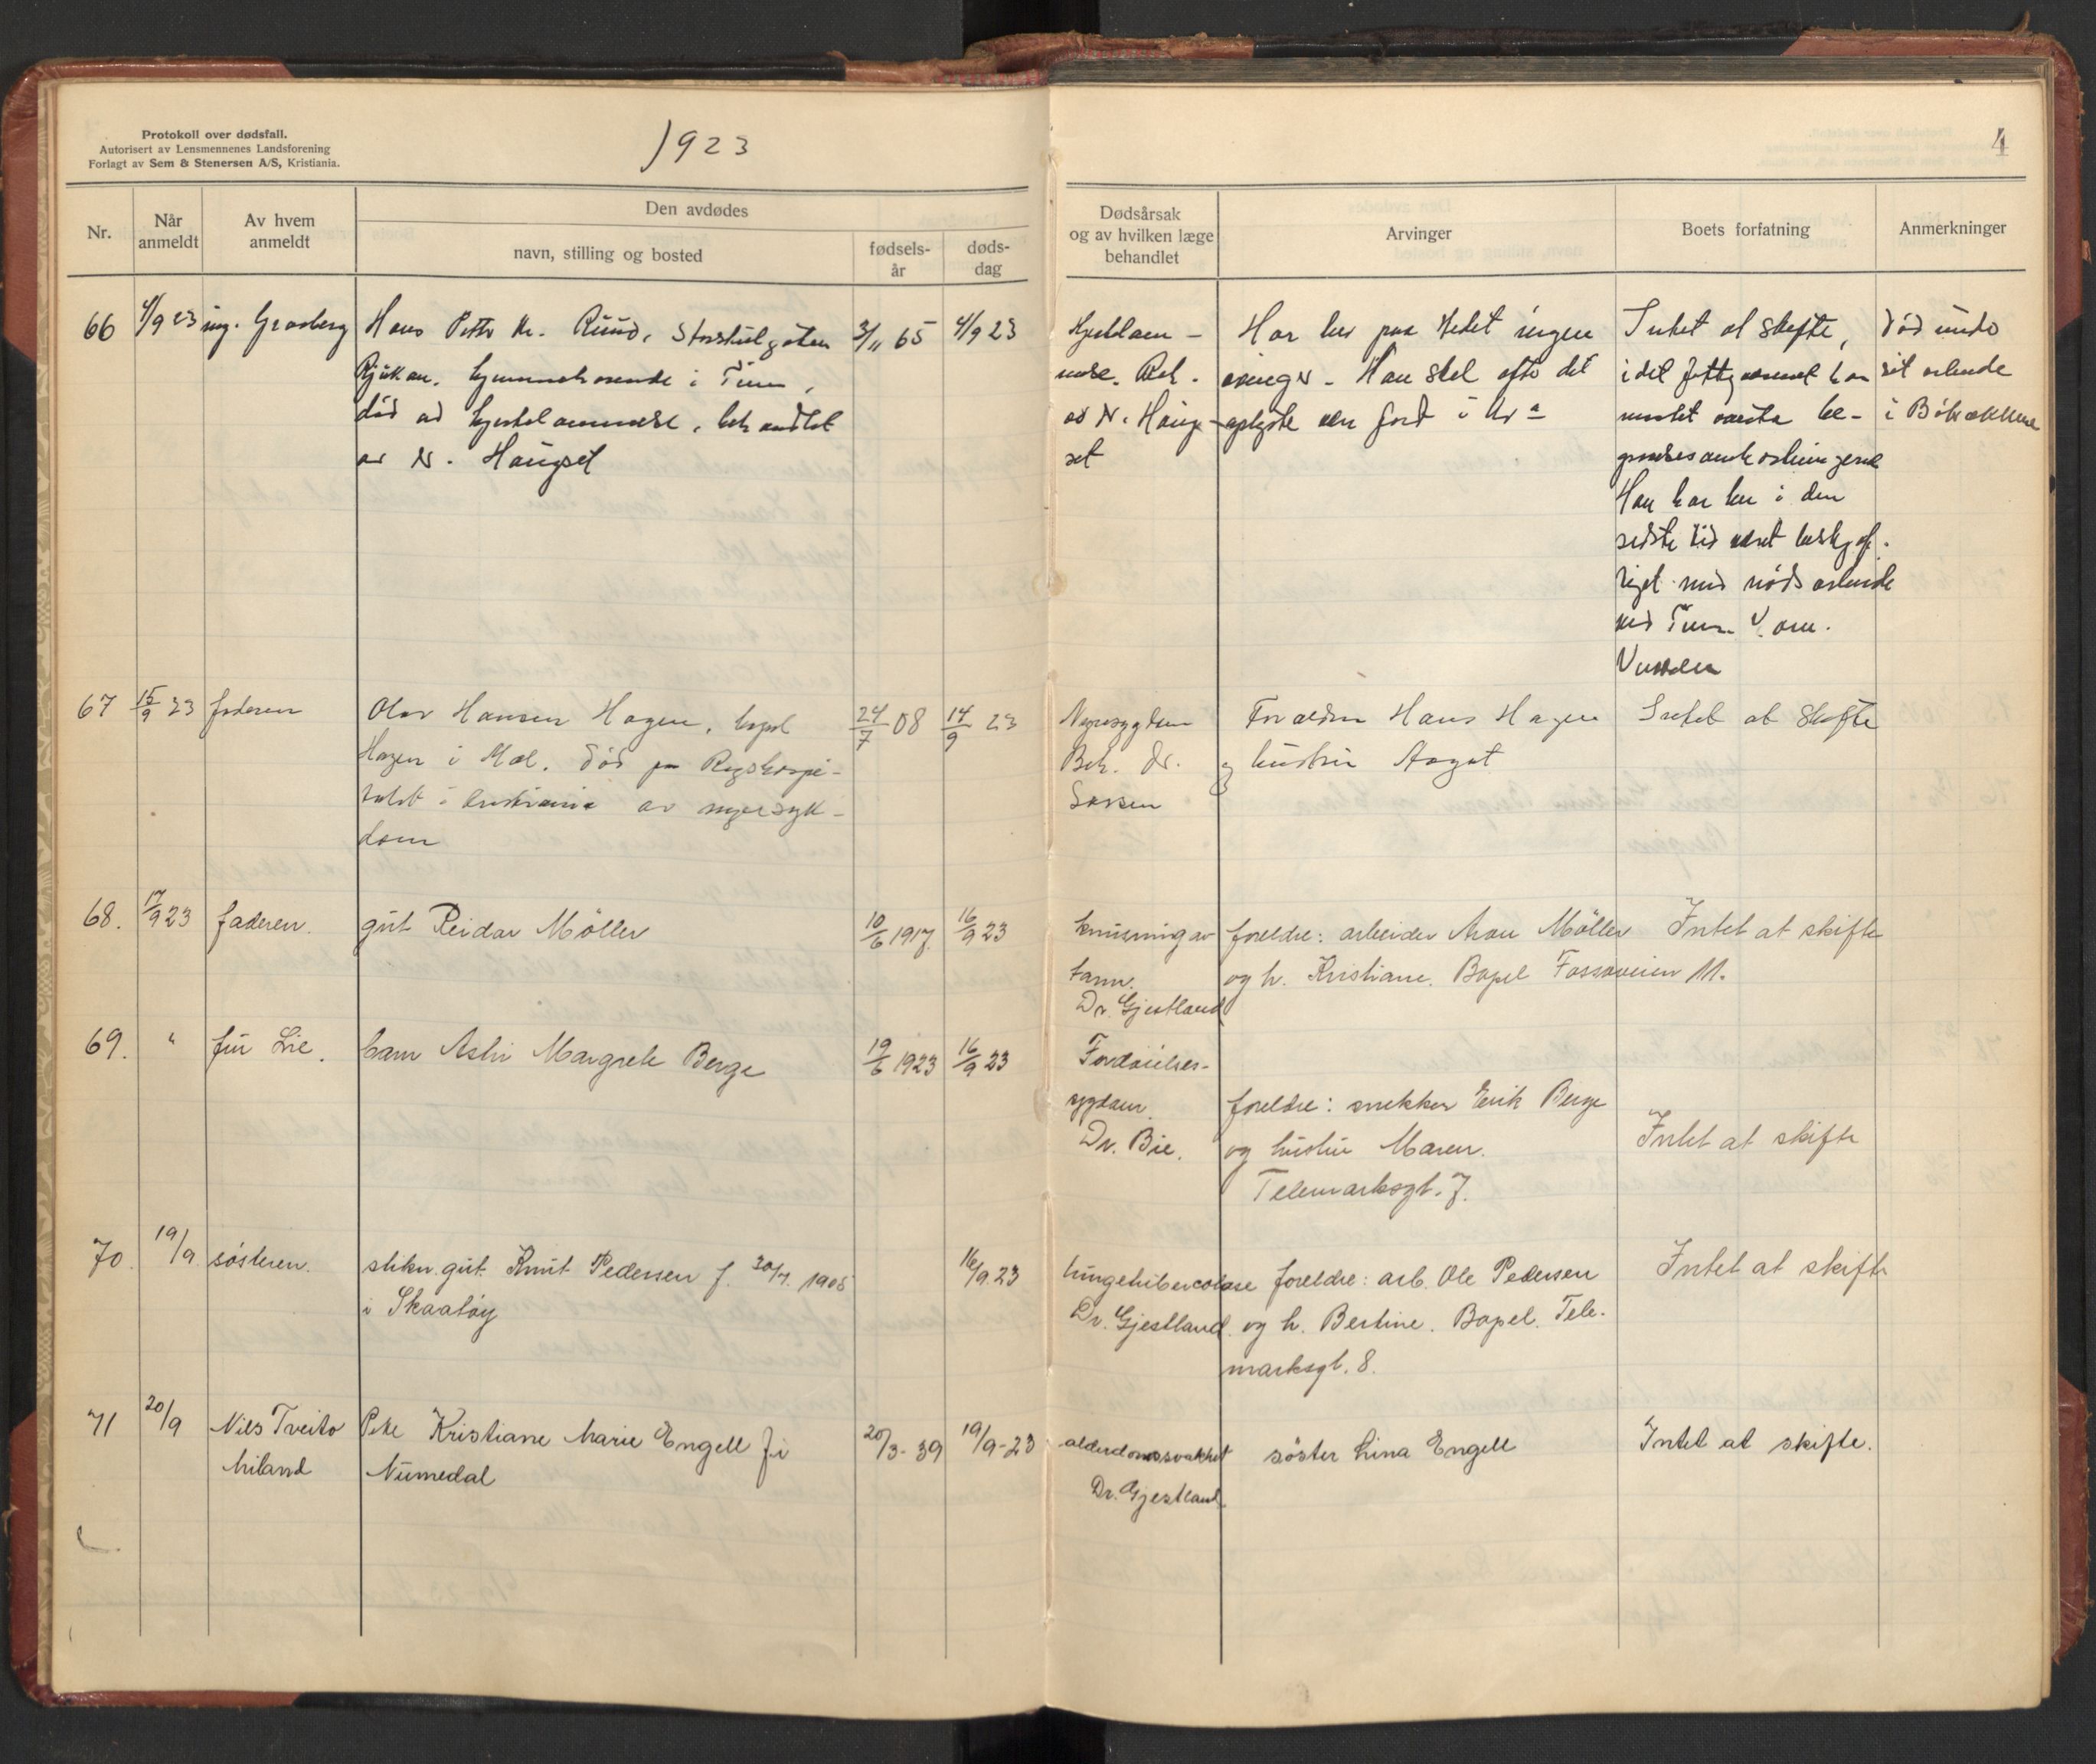 Protokoll over dødsfall.
Autorisert av Lensmennenes Landsforening
Forlagt av Sem & Stenersen A/S, Kristiania.
1923
4
Nr.
Når anmeldt
Av hvem anmeldt
Den avdødes
navn, stilling og bosted
fødsels-
år
døds-
dag
Dødsårsak
og av hvilken læge
behandlet
Arvinger
Boets forfatning
Anmerkninger
66 4/9 23 ing. Grosberg Hans Petter Kr. Ruud, 3/11 65 4/9 23
Rjukan. hjemmehørende i Tinn,
død av hjertelammelse, behandlet
av dr. Haugset
Hjertelam-
melse. Beh.
av dr. Haug-
set
Har her paa stedet ingen
arvinger. Han skal efter det
oplyste være født i Kra
Intet at skifte,
idet fattigvæsenet har
maattet utrede be-
gravelsesomkostningene
Han har her i den
sidste tid været beskjæf-
tiget med nødsarbeide
ved Tinn
død under
sit arbeide
i Bøkækkene
67 15/9 23 faderen Olav Hansen Hagen, bopel 24/7 08 14/9 23
Hagen i Mæl. Død paa Rigshospi-
talet i Kristiania av nyresyk-
dom
Nyresygdom
Beh. dr.
Forældre Hans Hagen
og hustru Aagot
Intet at skifte
68. 17/9 23 faderen. gut Reidar Möller 10/6 1917. 16/9 23
knusning av
tarm.
Dr. Gjestland
foreldre: arbeider Aron Möller
og h. Kristiane. Bopel Fossoveien 11.
Intet at skifte
69. " fru Lie. barn Astri Margrete Berge 19/6 1923 16/9 23
Fordøielses-
sygdom.
Dr. Bie.
foreldre: snekker Erik Berge
og hustru Maren.
Telemarksgt. 7.
Intet at skifte
70. 19/9. søsteren. gut. Knut Pedersen f. 30/7. 1905 16/9. 23
i Skaatøy
lungetuberculose
Dr. Gjestland.
foreldre: arb. Ole Pedersen
og h. Bertine. Bopel. Tele-
marksgt. 8.
Intet at skifte
71 20/9 Nils Tveito
Miland
Pike Kristiane Marie Engell f. i 20/3-39 19/9-23
Numedal
alderdomssvakhet
Dr. Gjestland.
søster Lina Engell
Intet at skifte.